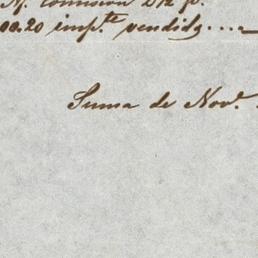 comisión 2½ p.
00.20 imp.te vendido....
Suma de Nov.e